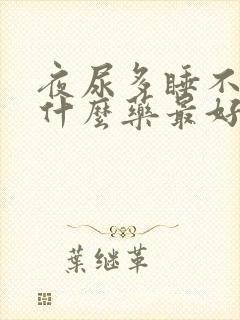 夜尿多睡不
什麼藥最好
葉继革